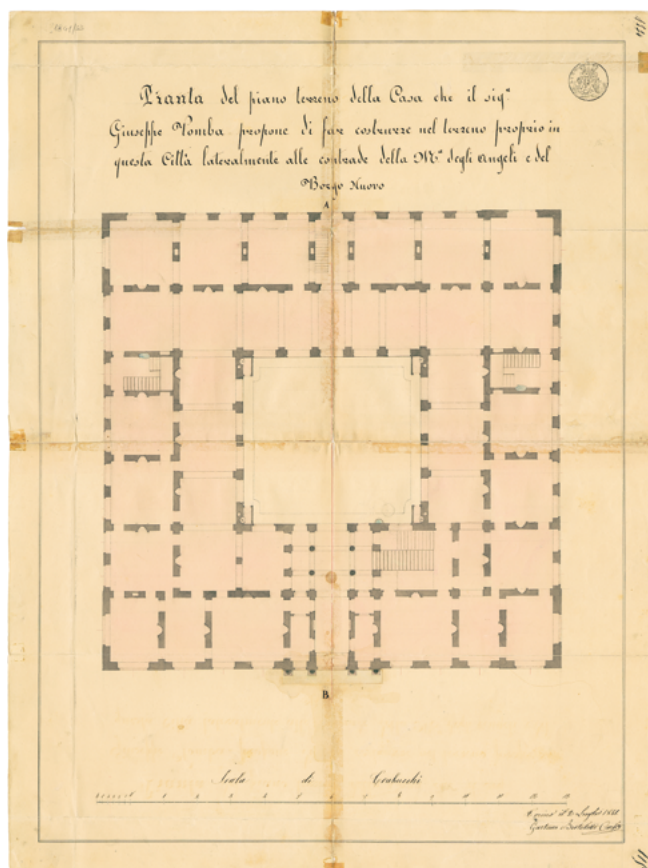 Pianta del piano terreno della Casa che il sig.r
Giuseppe Pomba propone di far costrurre nel terreno proprio in
questa Città lateralmente alle contrade della M.a degli Angeli e del
Borgo Nuovo
A
B
Scala di Trabucchi
Torino